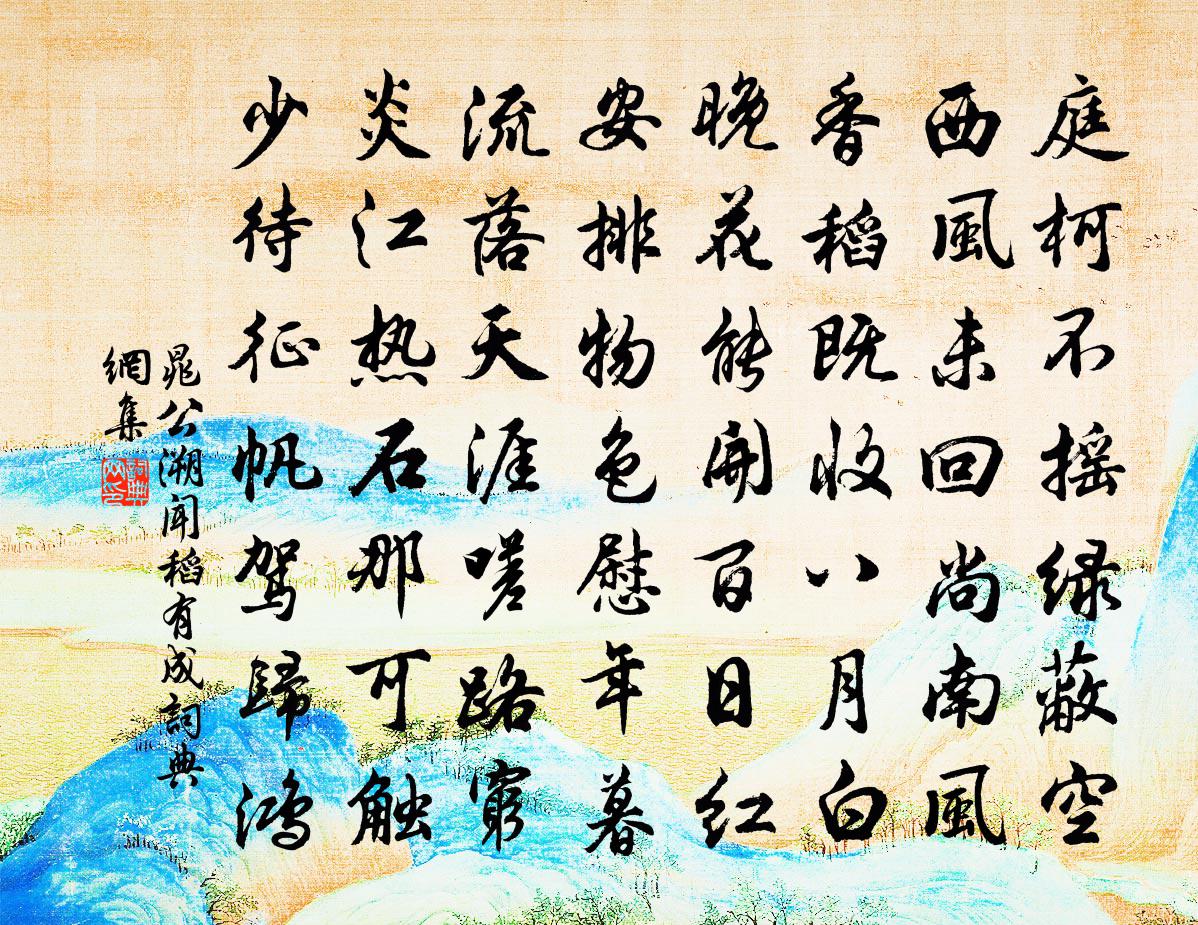 庭柯不摇绿蔽空
西風未回尚南風
香稻既收八月白
晚花能開百日红
安排物色慰年暮
流落天涯嗟路窮
炎江热石那可触
少待征帆驾歸鸿
晁公溯闻稻有成詞典
網集
詞典